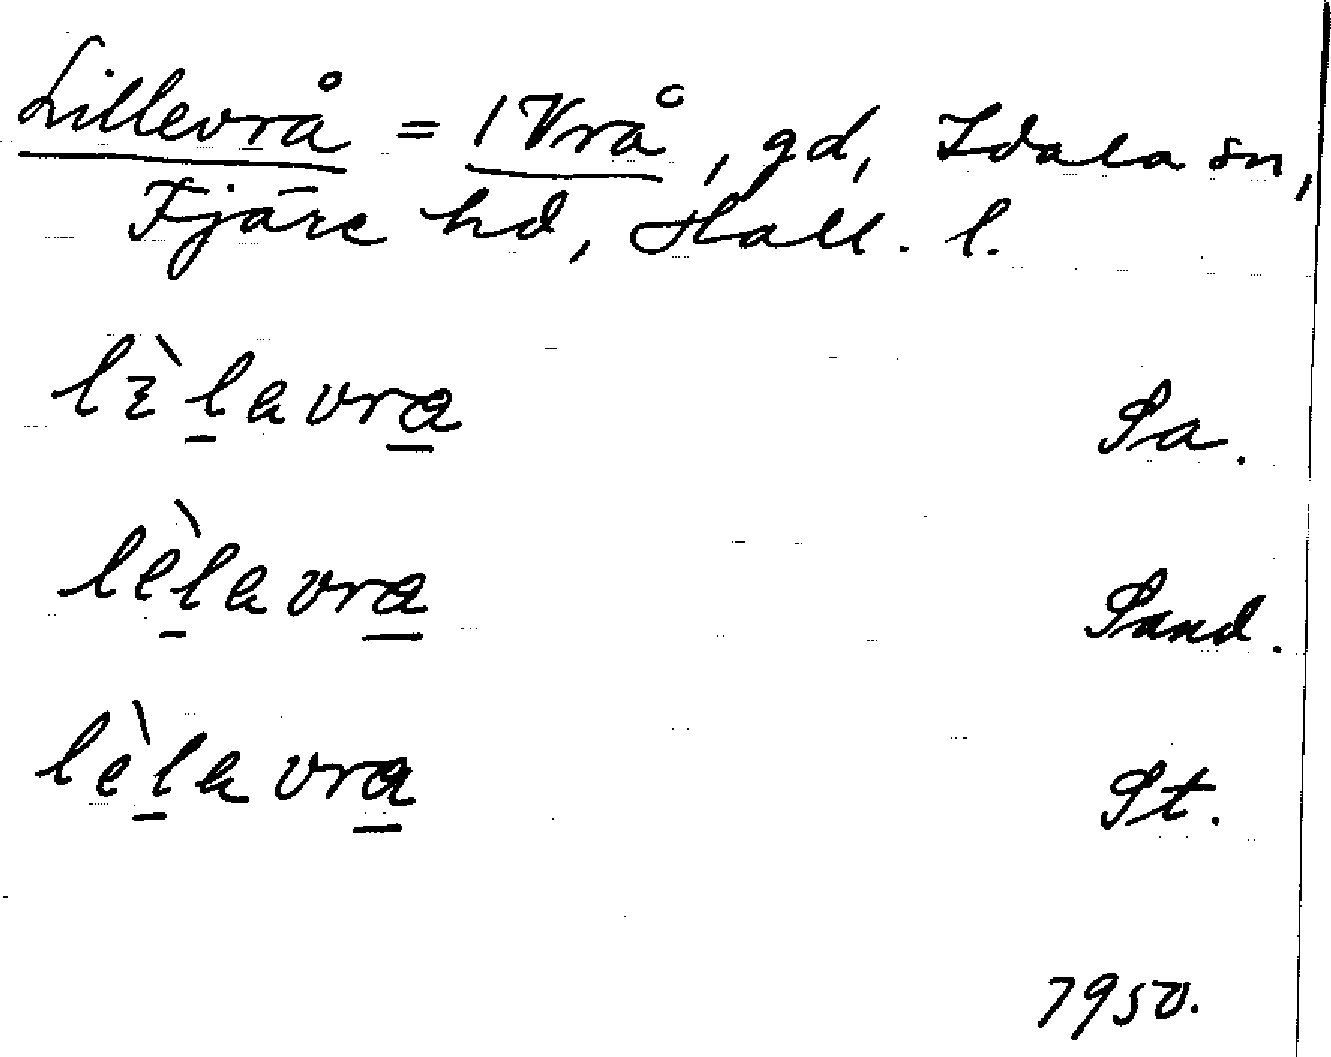 Lillevrå = 1 Vrå, gd, Idala sn,
Fjäre hd, Hall. l.
lìlavra Sa.
lèlavra Sand.
lèlavra St.
1950.